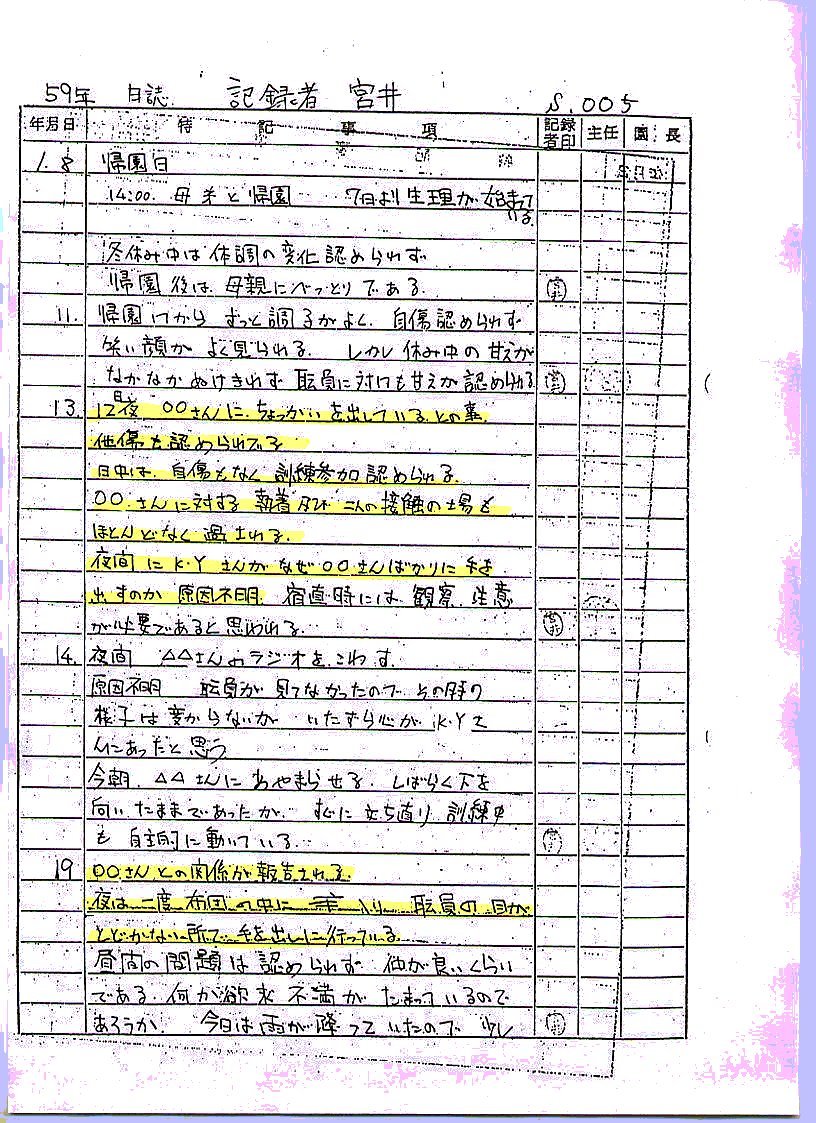 59年 日誌 記録者 宮井 S.005
年月日 特記事項 記録者印 主任 園長
1.8 帰園日
14:00. 母 弟と帰園 7日より生理が始まっている.
冬休み中は体調の変化認められず
帰園後は、母親にべったりである.
11. 帰園してからずっと調子がよく、自傷認められず
笑い顔がよく見られる. しかし休み中の甘えが
なかなかぬけきれず 職員に対しても甘えが認められる.
13. 12日夜 〇〇さんに、ちょっかいを出しているとの事.
他傷も認められてる
日中は、自傷もなく 訓練参加認められる.
〇〇.さんに対する 執着及び 二人の接触の場も
ほとんどなく過される.
夜間にK.Yさんがなぜ〇〇さんばかりに手を
出すのか 原因不明. 宿直時には、観察、注意
が必要であると思われる.
14. 夜間 △△さんのラジオをこわす.
原因不明 職員が見てなかったので その時の
様子は変からないが いたずら心が K.Yさ
んにあったと思う.
今朝. △△さんにあやまらせる. しばらく下を
向いたままであったが、すぐに立ち直り 訓練中
も 自主的に動いている.
19 〇〇さんとの関係が報告される.
夜は一度布団の中に 入り 職員の目が
とどかない所で手を出しに行っている.
昼間の問題は認められず 仲が良いくらい
である. 何か欲求不満が たまっているので
あろうか. 今日は雨が降っていたので 少し